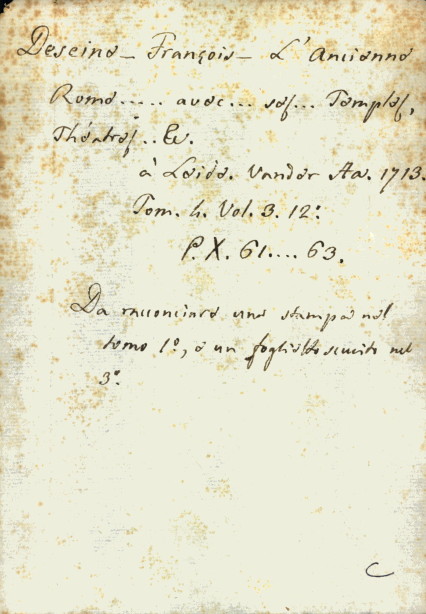 Deseine - François - L'Ancienne
Rome ..... avec ... ses ... Temples,
Théatres .. &c.
à Leide. Vander Aa. 1713.
Tom. 4. Vol. 3. 12º:
P. X. 61 .... 63.
Da racconciare una stampa nel
tomo 1º, e un foglietto scucito nel
3º.
C